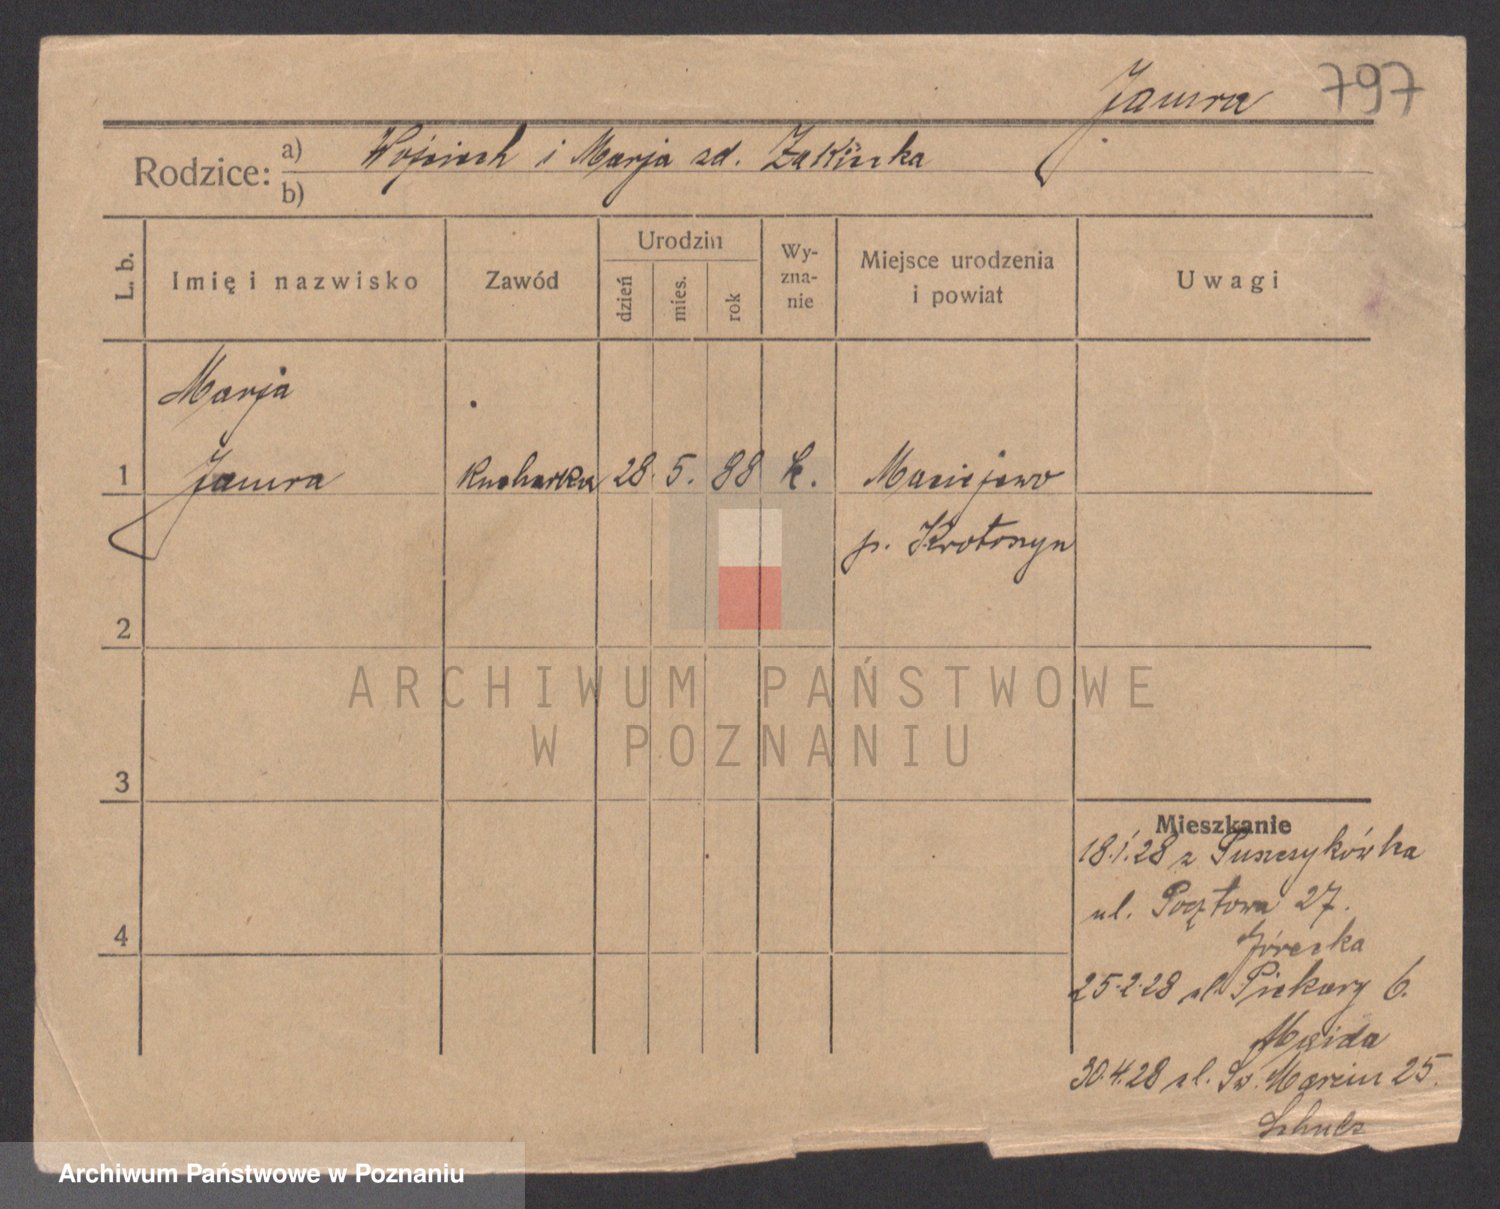 Jamra 797
Rodzice: a) Wojciech i Marja zd.
b)
L. b.
Imię i nazwisko
Zawód
Urodzin
dzień
mies.
rok
Wy-
zna-
nie
Miejsce urodzenia
i powiat
Uwagi
Marja
1 Jamra Kucharka 28. 5. 88 k. Maciejewo
p. Krotoszyn
2
3
4
Mieszkanie
18.1.28 z
ul. Pocztowa 27.
Górecka
25.2.28 ul. Piekary 6.
30.4.28 ul. Św. Marcin 25.
ARCHIWUM PAŃSTWOWE
W POZNANIU
Archiwum Państwowe w Poznaniu